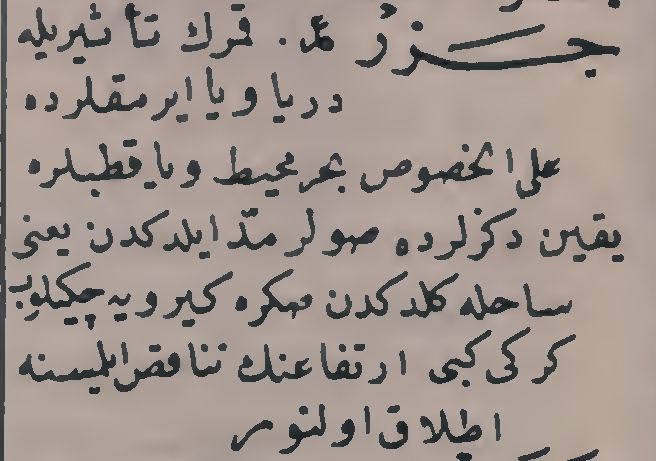 جزر عد. قمرك تأثيريله
دريا ويا ايرمقلرده
على الخصوص بحر محيط ويا قطبلره
يقين دكزلرده صولر مدّ ايلدكدن يعنى
ساحله كلدكدن صكره كيرويه چكيلوب
كركى كبى ارتفاعنك تناقص ايلمسنه
اطلاق اولنور